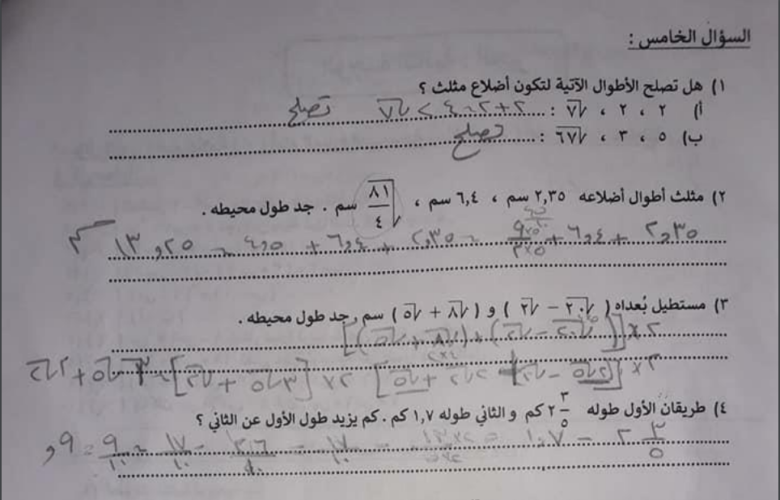 السؤال الخامس :
١) هل تصلح الأطوال الآتية لتكون أضلاع مثلث ؟
أ) ٢ ، ٢ ، √٧ : ٢+٢=٤ > √٧ تصلح
ب) ٥ ، ٣ ، √٦٧ : تصلح
٢) مثلث أطوال أضلاعه ٢,٣٥ سم ، ٦,٤ سم ، √(٨١/٤) سم . جد طول محيطه .
٢,٣٥ + ٦,٤ + ٩×٥/٢×٥ = ٢,٣٥ + ٦,٤ + ٤,٥ = ١٣,٢٥ سم
٣) مستطيل بُعداه ( √٢٠ − √٢ ) و ( √٨ + √٥ ) سم , جد طول محيطه .
٢×[(√٢٠ − √٢) + (√٨ + √٥)]
٢×[٢√٥ − √٢ + ٢√٢ + √٥] ٢×[٣√٥ + √٢] = ٦√٥ + ٢√٢
٤) طريقان الأول طوله ٢ ٣/٥ كم و الثاني طوله ١,٧ كم . كم يزيد طول الأول عن الثاني ؟
٢ ٣/٥ − ١,٧ = ١٧/١٠ − ١٧/١٠ = ٩/١٠ = ٠,٩